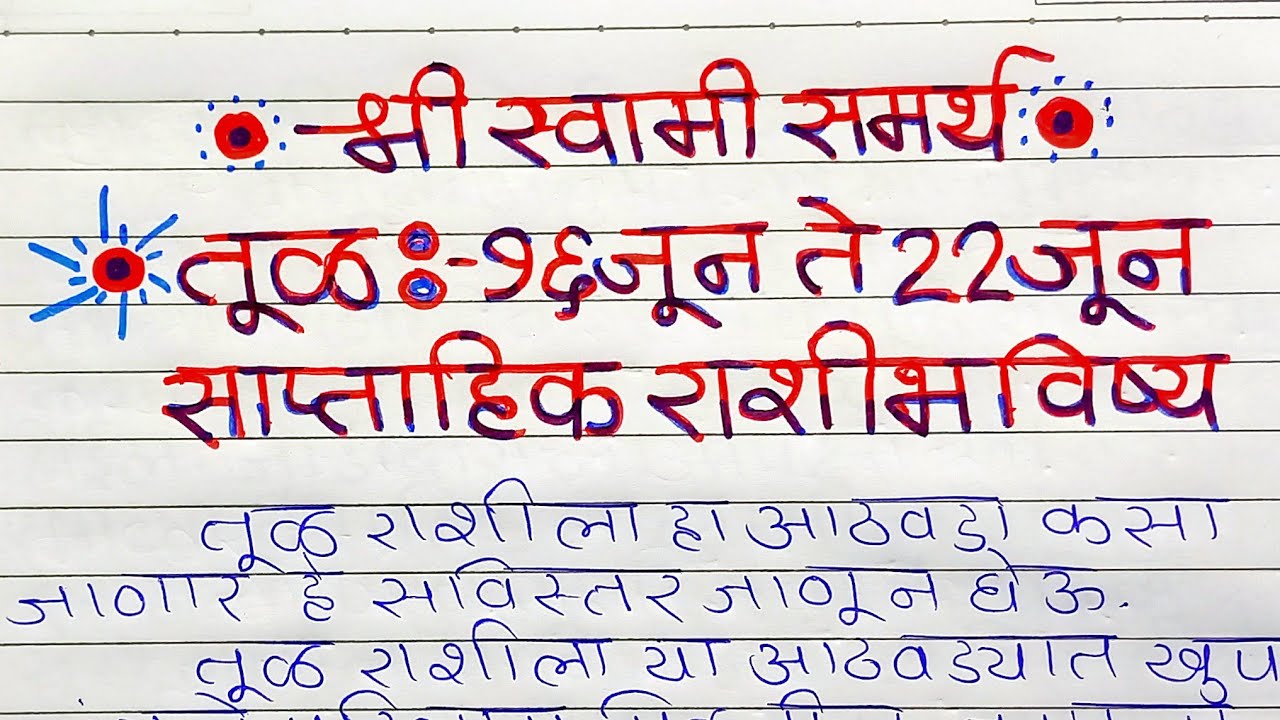 श्री स्वामी समर्थ
तूळ :- १६ जून ते 22 जून
साप्ताहिक राशीभविष्य
तूळ राशीला हा आठवडा कसा
जाणार हे सविस्तर जाणून घेऊ.
तूळ राशीला या आठवड्यात खुप